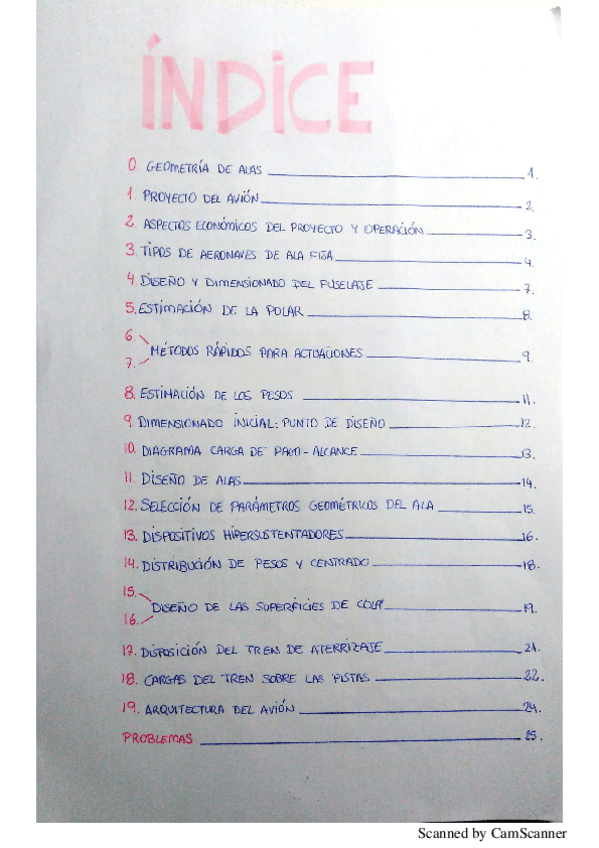 ÍNDICE
0 GEOMETRÍA DE ALAS 1.
1. PROYECTO DEL AVIÓN 2.
2. ASPECTOS ECONÓMICOS DEL PROYECTO Y OPERACIÓN 3.
3. TIPOS DE AERONAVES DE ALA FIJA 4.
4. DISEÑO Y DIMENSIONADO DEL FUSELAJE 7.
5. ESTIMACIÓN DE LA POLAR 8.
6.
MÉTODOS RÁPIDOS PARA ACTUACIONES 9.
7.
8. ESTIMACIÓN DE LOS PESOS 11.
9. DIMENSIONADO INICIAL: PUNTO DE DISEÑO 12.
10. DIAGRAMA CARGA DE PAGO - ALCANCE 13.
11. DISEÑO DE ALAS 14.
12. SELECCIÓN DE PARÁMETROS GEOMÉTRICOS DEL ALA 15.
13. DISPOSITIVOS HIPERSUSTENTADORES 16.
14. DISTRIBUCIÓN DE PESOS Y CENTRADO 18.
15.
DISEÑO DE LAS SUPERFICIES DE COLA 19.
16.
17. DISPOSICIÓN DEL TREN DE ATERRIZAJE 21.
18. CARGAS DEL TREN SOBRE LAS PISTAS 22.
19. ARQUITECTURA DEL AVIÓN 24.
PROBLEMAS 25.
Scanned by CamScanner